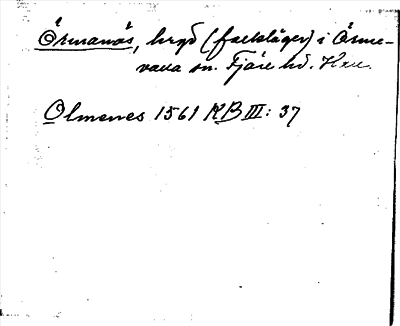 Örmanäs, bryd (fäekläger) i Örme-
valla sn. Fjäre hd. Hrn.
Olmenes 1561 RB III: 37